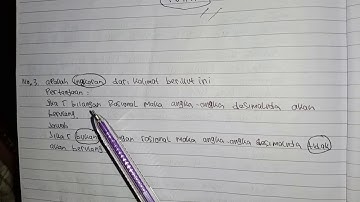 No 3. apakah ingkaran dari kalimat berikut ini
Pertanyaan :
Jika r bilangan Rasional Maka angka-angka desimalnya akan
berulang
Jawab
Jika r bukan rasional maka angka-angka desimalnya tidak
akan berulang